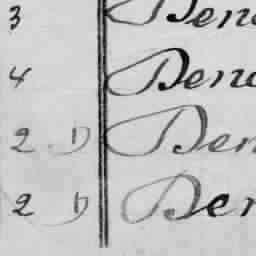 3 Ben
4 Bend
2 D Ben
2 D Ben